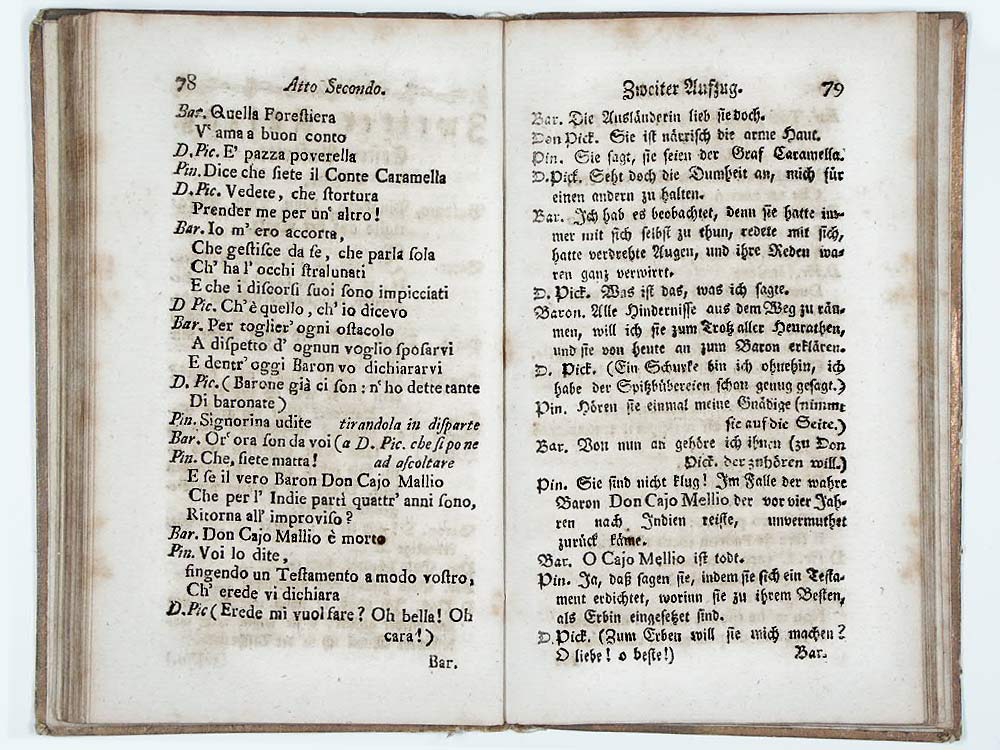 78 Atto Secondo.
Bar. Quella Foreſtiera
V' ama a buon conto
D. Pic. E' pazza poverella
Pin. Dice che ſiete il Conte Caramella
D. Pic. Vedete, che ſtortura
Prender me per un' altro!
Bar. Io m' ero accorta,
Che geſtiſce da ſe, che parla ſola
Ch' ha l' occhi ſtralunati
E che i diſcorſi ſuoi ſono impicciati
D Pic. Ch' è quello, ch' io dicevo
Bar. Per toglier' ogni oſtacolo
A diſpetto d' ognun voglio ſpoſarvi
E dentr' oggi Baron vo dichiararvi
D. Pic. (Barone già ci ſon: n' ho dette tante
Di baronate)
Pin. Signorina udite tirandola in diſparte
Bar. Or' ora ſon da voi (a D. Pic. che ſi pone
Pin. Che, ſiete matta! ad aſcoltare
E ſe il vero Baron Don Cajo Mallio
Che per l' Indie partì quattr' anni ſono,
Ritorna all' improviſo?
Bar. Don Cajo Mallio è morto
Pin. Voi lo dite,
fingendo un Teſtamento a modo voſtro,
Ch' erede vi dichiara
D. Pic (Erede mi vuol fare? Oh bella! Oh
cara!)
Bar.
Zweiter Aufzug. 79
Bar. Die Ausländerin lieb ſie doch.
Don Pick. Sie iſt närriſch die arme Haut.
Pin. Sie ſagt, ſie ſeien der Graf Caramella.
D. Pick. Seht doch die Dumheit an, mich für
einen andern zu halten.
Bar. Ich hab es beobachtet, denn ſie hatte im-
mer mit ſich ſelbſt zu thun, redete mit ſich,
hatte verdrehte Augen, und ihre Reden wa-
ren ganz verwirrt.
D. Pick. Was iſt das, was ich ſagte.
Baron. Alle Hinderniſſe aus dem Weg zu räu-
men, will ich ſie zum Trotz aller Heurathen,
und ſie von heute an zum Baron erklären.
D. Pick. (Ein Schurke bin ich ohnehin, ich
habe der Spitzbübereien ſchon genug geſagt.)
Pin. Hören ſie einmal meine Gnädige (nimmt
ſie auf die Seite.)
Bar. Von nun an gehöre ich ihnen (zu Don
Pick. der zuhören will.)
Pin. Sie ſind nicht klug! Im Falle der wahre
Baron Don Cajo Mellio der vor vier Jah-
ren nach Indien reiſte, unvermuthet
zurück käme.
Bar. O Cajo Mellio iſt todt.
Pin. Ja, daß ſagen ſie, indem ſie ſich ein Teſta-
ment erdichtet, worinn ſie zu ihrem Beſten,
als Erbin eingeſetzet ſind.
D. Pick. (Zum Erben will ſie mich machen?
O liebe! o beſte!) Bar.